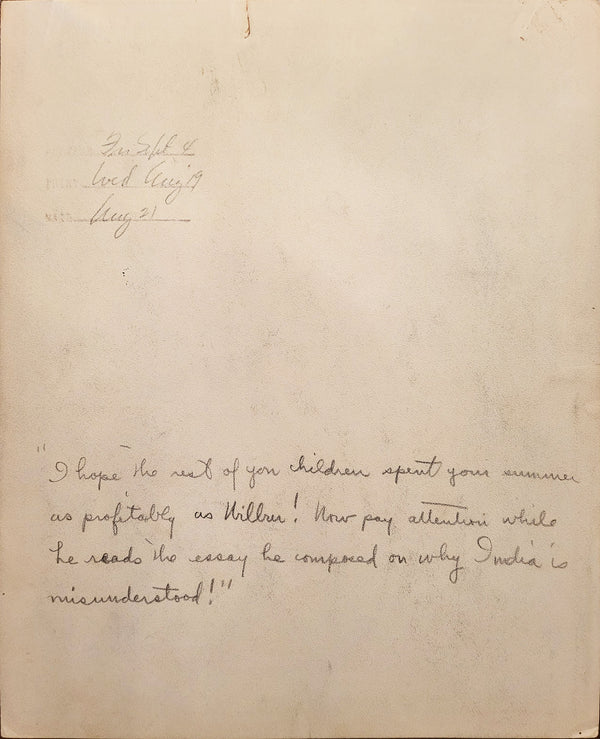 Fri Sept 4
Wed Aug 19
Aug 21
"I hope the rest of you children spent your summer
as profitably as Wilbur! Now pay attention while
he reads the essay he composed on why India is
misunderstood!"